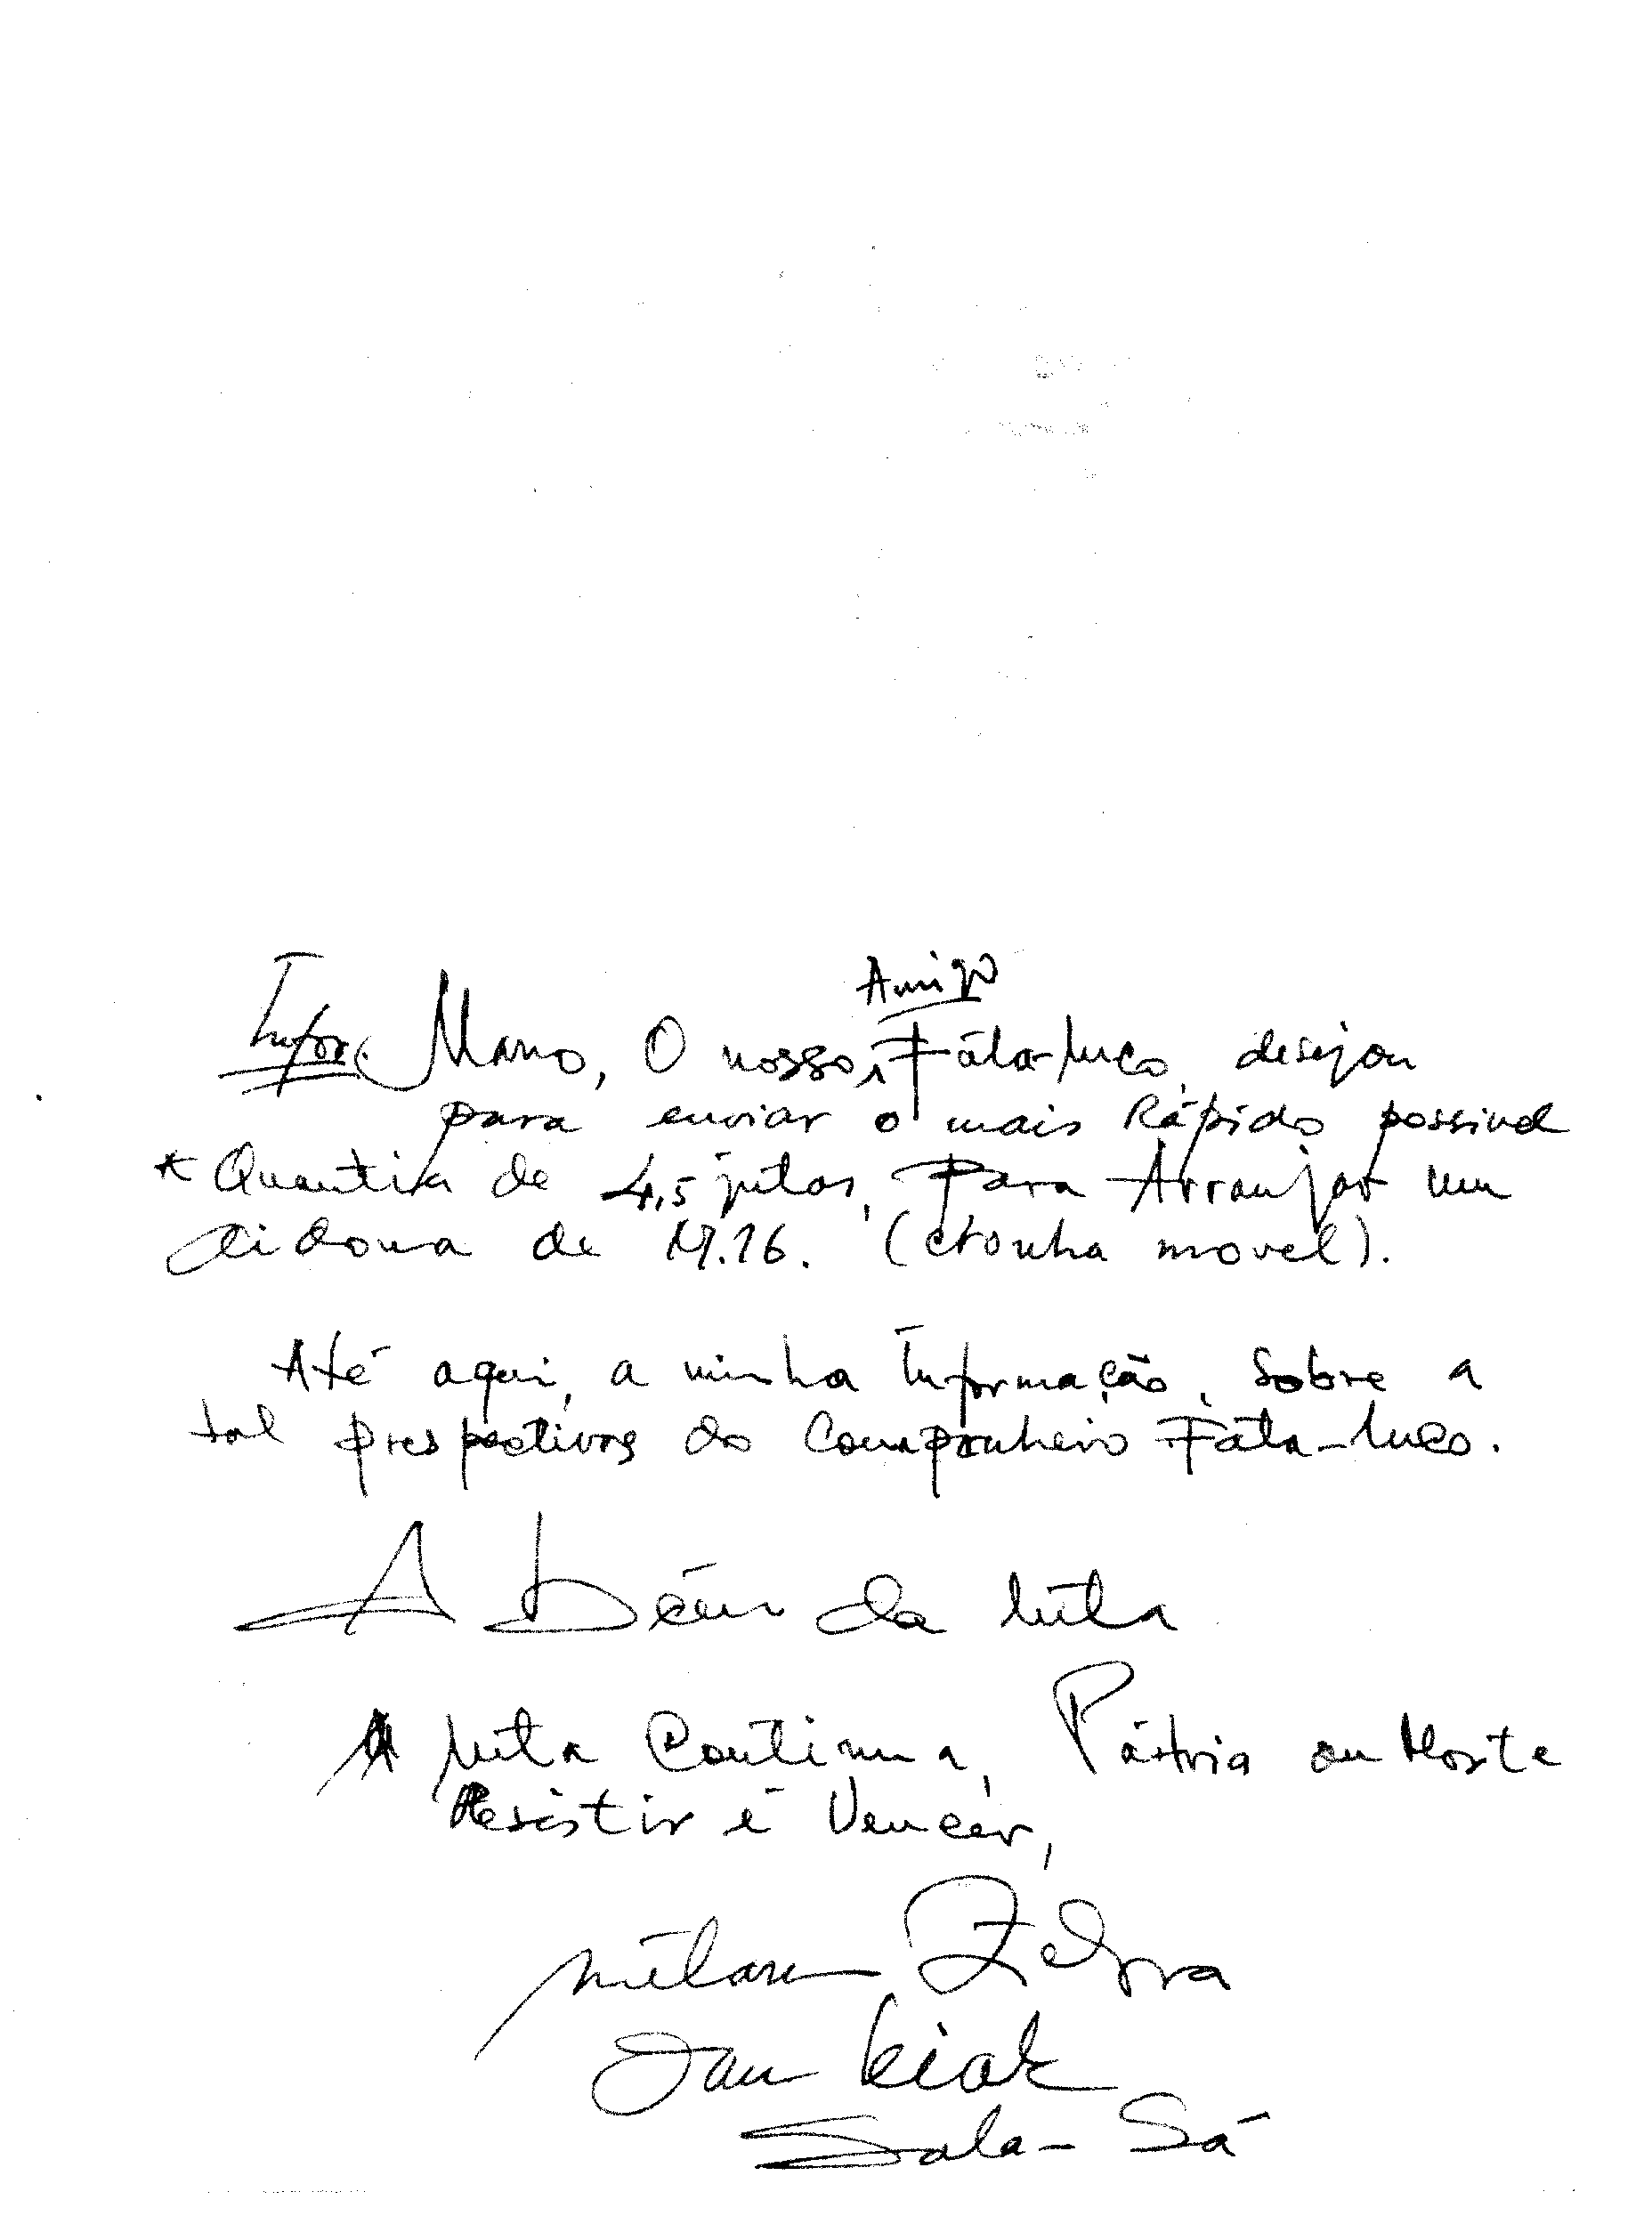 Amigo
Infor. Mano, O nosso, Fáta-luco, desejou
para enviar o mais Rápido possivel
* Quantia de 4,5 jutas, Para Arranjar um
de M.16. (cronha movel).
Até aqui, a minha Informação, Sobre a
tal prespectivas do Companheiro Fáta-luco.
A bém da luta
A luta Continua, Pátria ou Morte
Resistir é Vencer,
Zebra
kiak
Sala-Sá